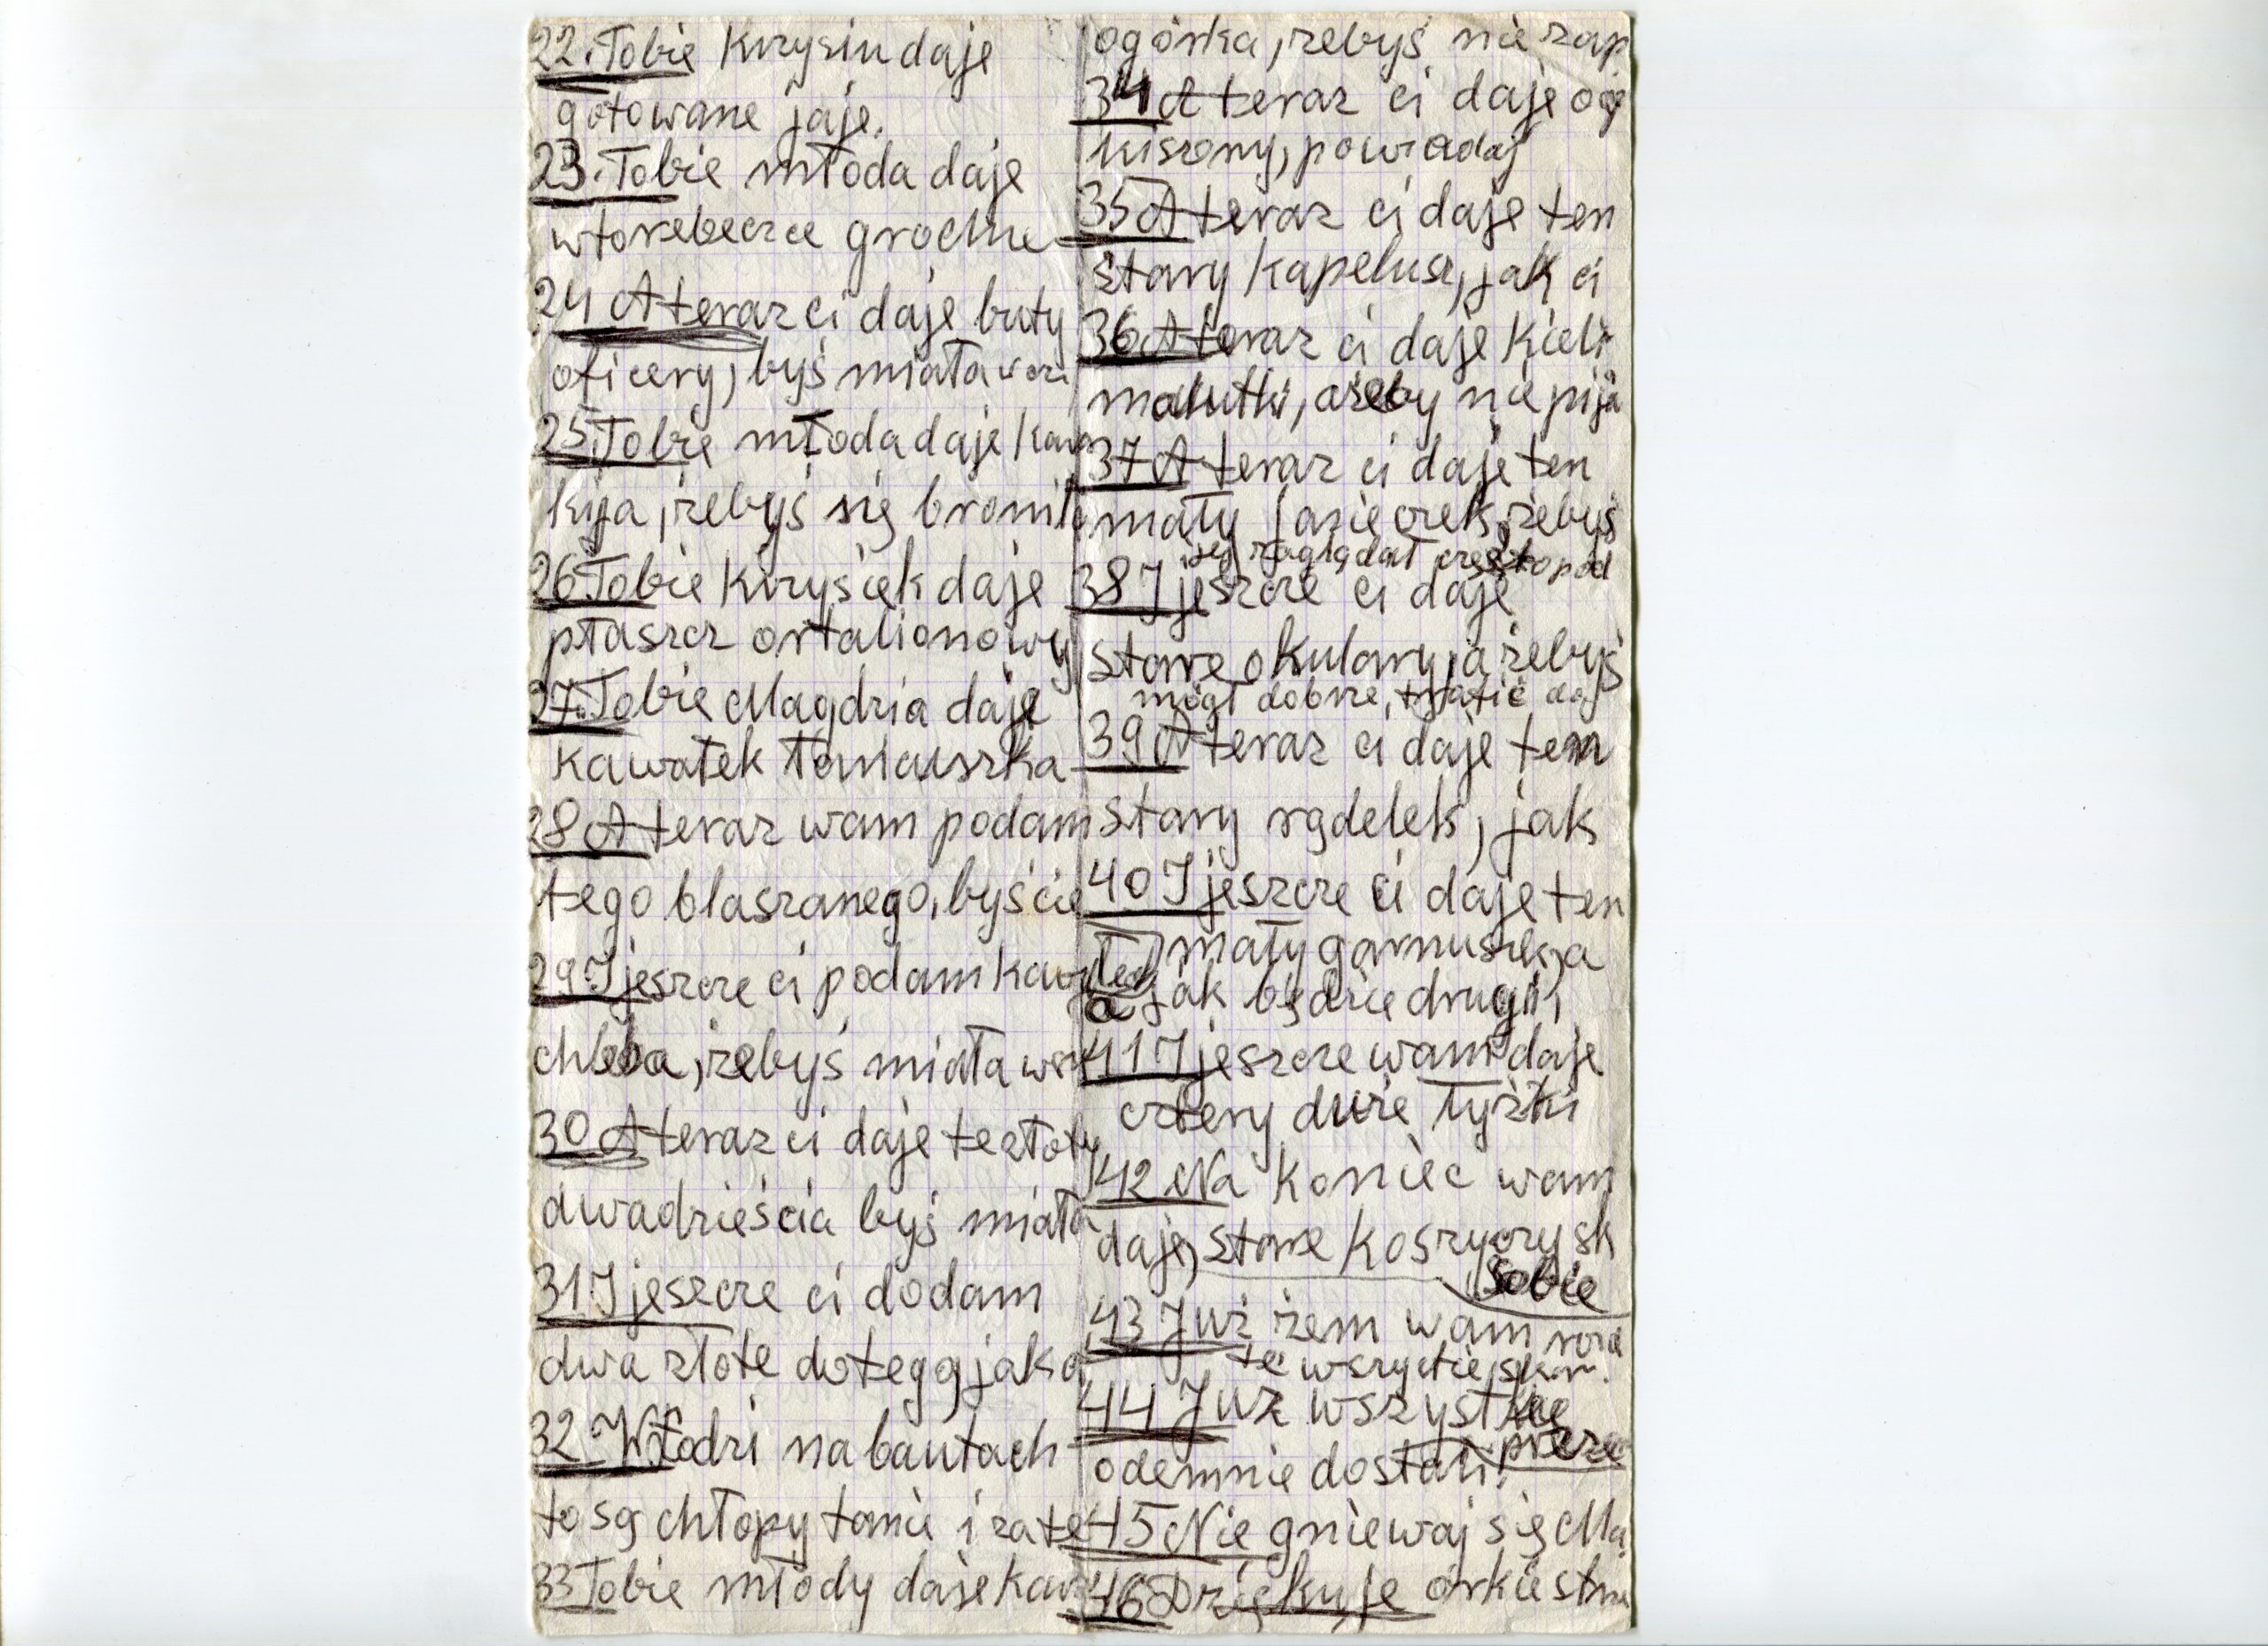 22. Tobie Krzysiu daje
gotowane jaje.
23. Tobie młoda daje
w torebeczce grochu
24 A teraz ci daje buty
oficery, byś miała w czi
25. Tobie młoda daje kawa
kija, żebyś się broniła
26. Tobie Krzysiek daje
płaszcz ortalionowy
27. Tobie Magdzia daje
kawałek fartuszka
28 A teraz wam podam
tego blaszanego, byście
29 I jeszcze ci podam kawa
chleba, żebyś miała wsz
30 A teraz ci daje te złoty
dwadzieścia byś miała
31 I jeszcze ci dodam
dwa złote do tego, jak
32 W Łodzi na bałutach
to są chłopy tanie i za te
33 Tobie młody daje kaw
ogórka, żebyś nie zap
34 A teraz ci daje og
kiszony, powiadaj
35 A teraz ci daje ten
stary kapelusz, jak ci
36 A teraz ci daje kieli
malutki, ażeby nie pija
37 A teraz ci daje ten
mały łazieczek, żebyś
się zaglądał często pod
38 I jeszcze ci daje
stare okulary, a żebyś
mógł dobrze, trafić do
39 A teraz ci daje ten
stary rądelek, jak
40 I jeszcze ci daje ten
mały garnuszek, a
a jak będzie drugi,
41 I jeszcze wam daje
cztery duże łyżki
42 Na koniec wam
daje, stare koszyczysk
sobie
43 Już żem wam roz
te wszyćkie, skar.
44 Już wszystkie
prezę
odemnie dostali!
45 Nie gniewaj się Ma
46 Dziękuje orkiestrze